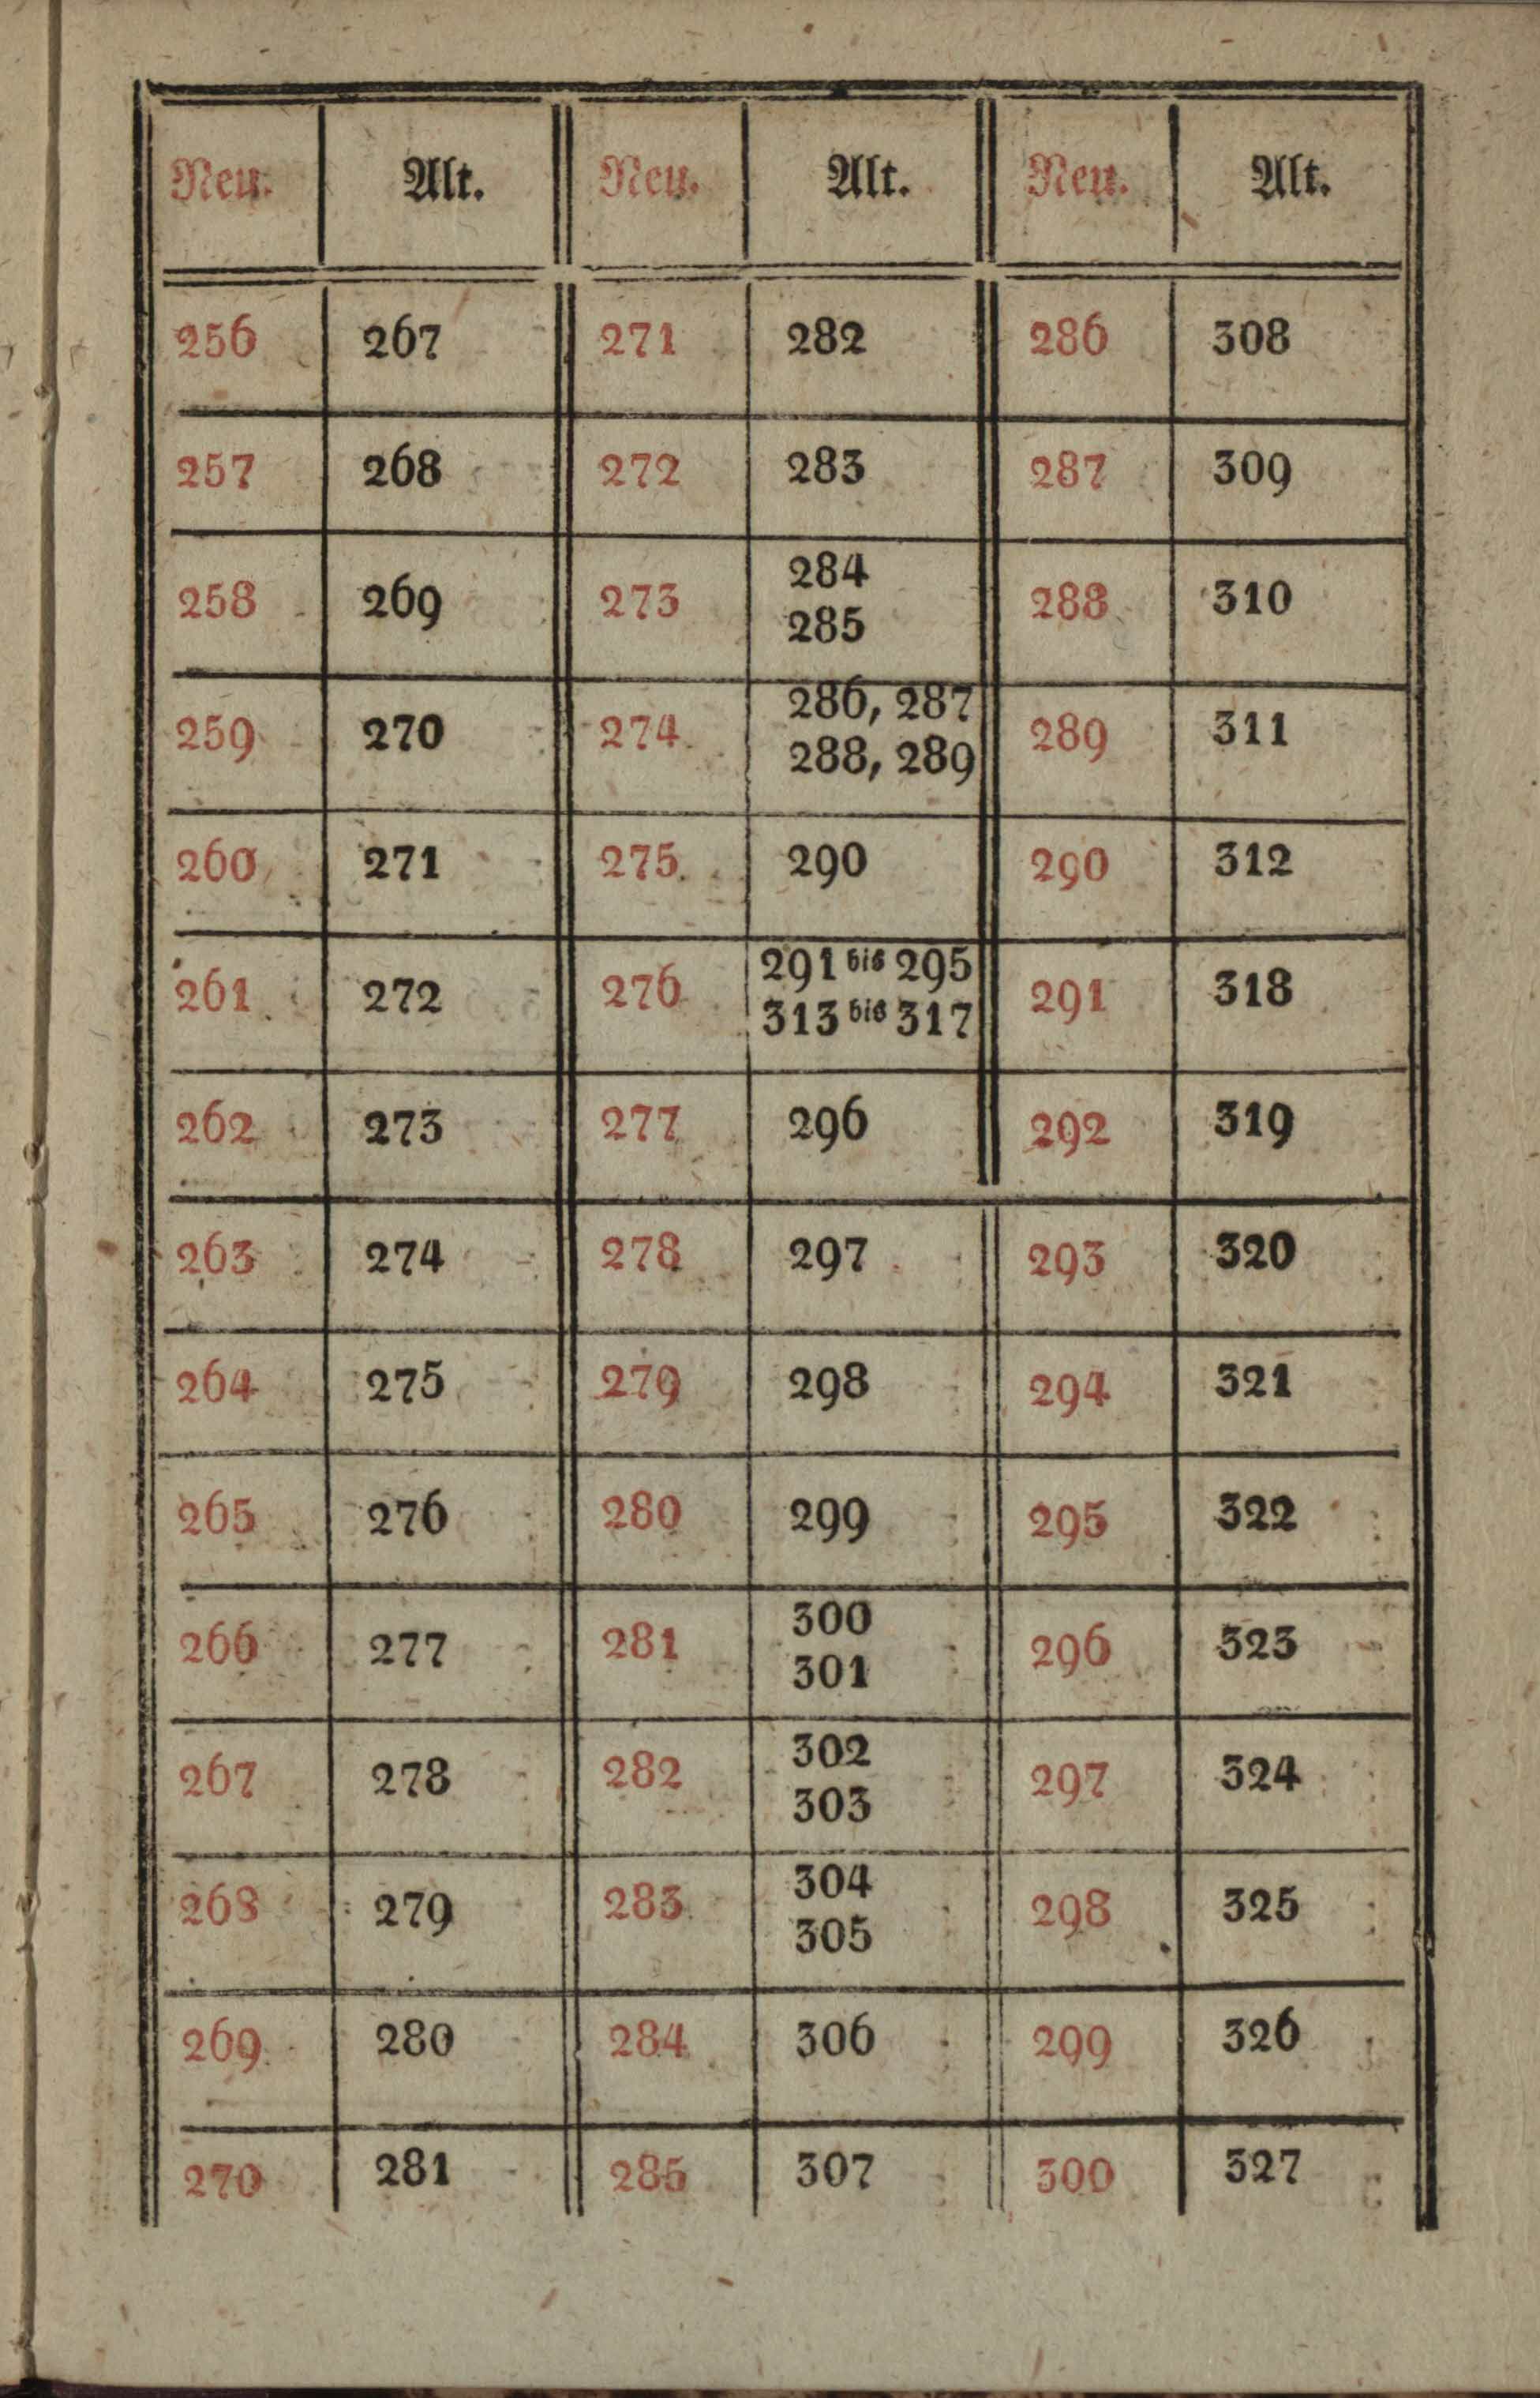 Neu. Alt. Neu. Alt. Neu. Alt.
256 267 271 282 286 308
257 268 272 283 287 309
258 269 273 284 285 288 310
259 270 274 286, 287 288, 289 289 311
260 271 275 290 290 312
261 272 276 291 bis 295 313 bis 317 291 318
262 273 277 296 292 319
263 274 278 297 293 320
264 275 279 298 294 321
265 276 280 299 295 322
266 277 281 300 301 296 323
267 278 282 302 303 297 324
268 279 283 304 305 298 325
269 280 284 306 299 326
270 281 285 307 300 327